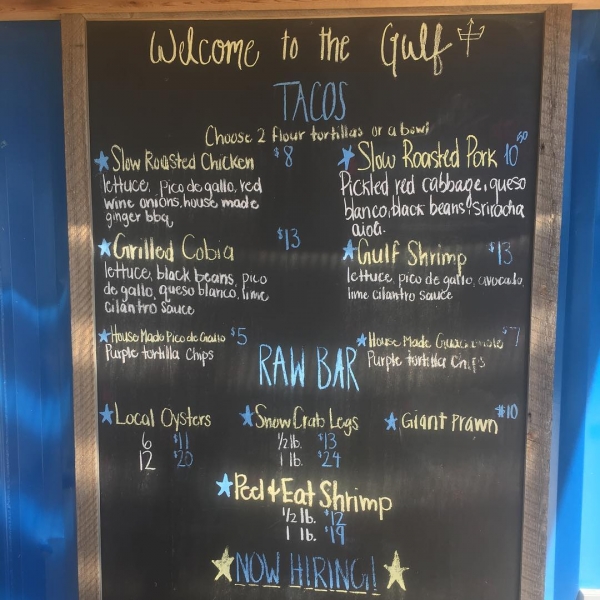 Welcome to the Gulf
TACOS
Choose 2 flour tortillas or a bowl
Slow Roasted Chicken $8
lettuce, pico de gallo, red
wine onions, house made
ginger bbq
Slow Roasted Pork 10.50
Pickled red cabbage, queso
blanco, black beans, sriracha
aioli
Grilled Cobia $13
lettuce, black beans, pico
de gallo, queso blanco, lime
cilantro sauce
Gulf Shrimp $13
lettuce, pico de gallo, avocado,
lime cilantro sauce
House Made Pico de Gallo $5
Purple tortilla Chips
House Made Guacamole $7
Purple tortilla Chips
RAW BAR
Local Oysters
6 $11
12 $20
Snow Crab Legs
1/2 lb. $13
1 lb. $24
Giant Prawn $10
Peel & Eat Shrimp
1/2 lb. $12
1 lb. $19
NOW HIRING!!